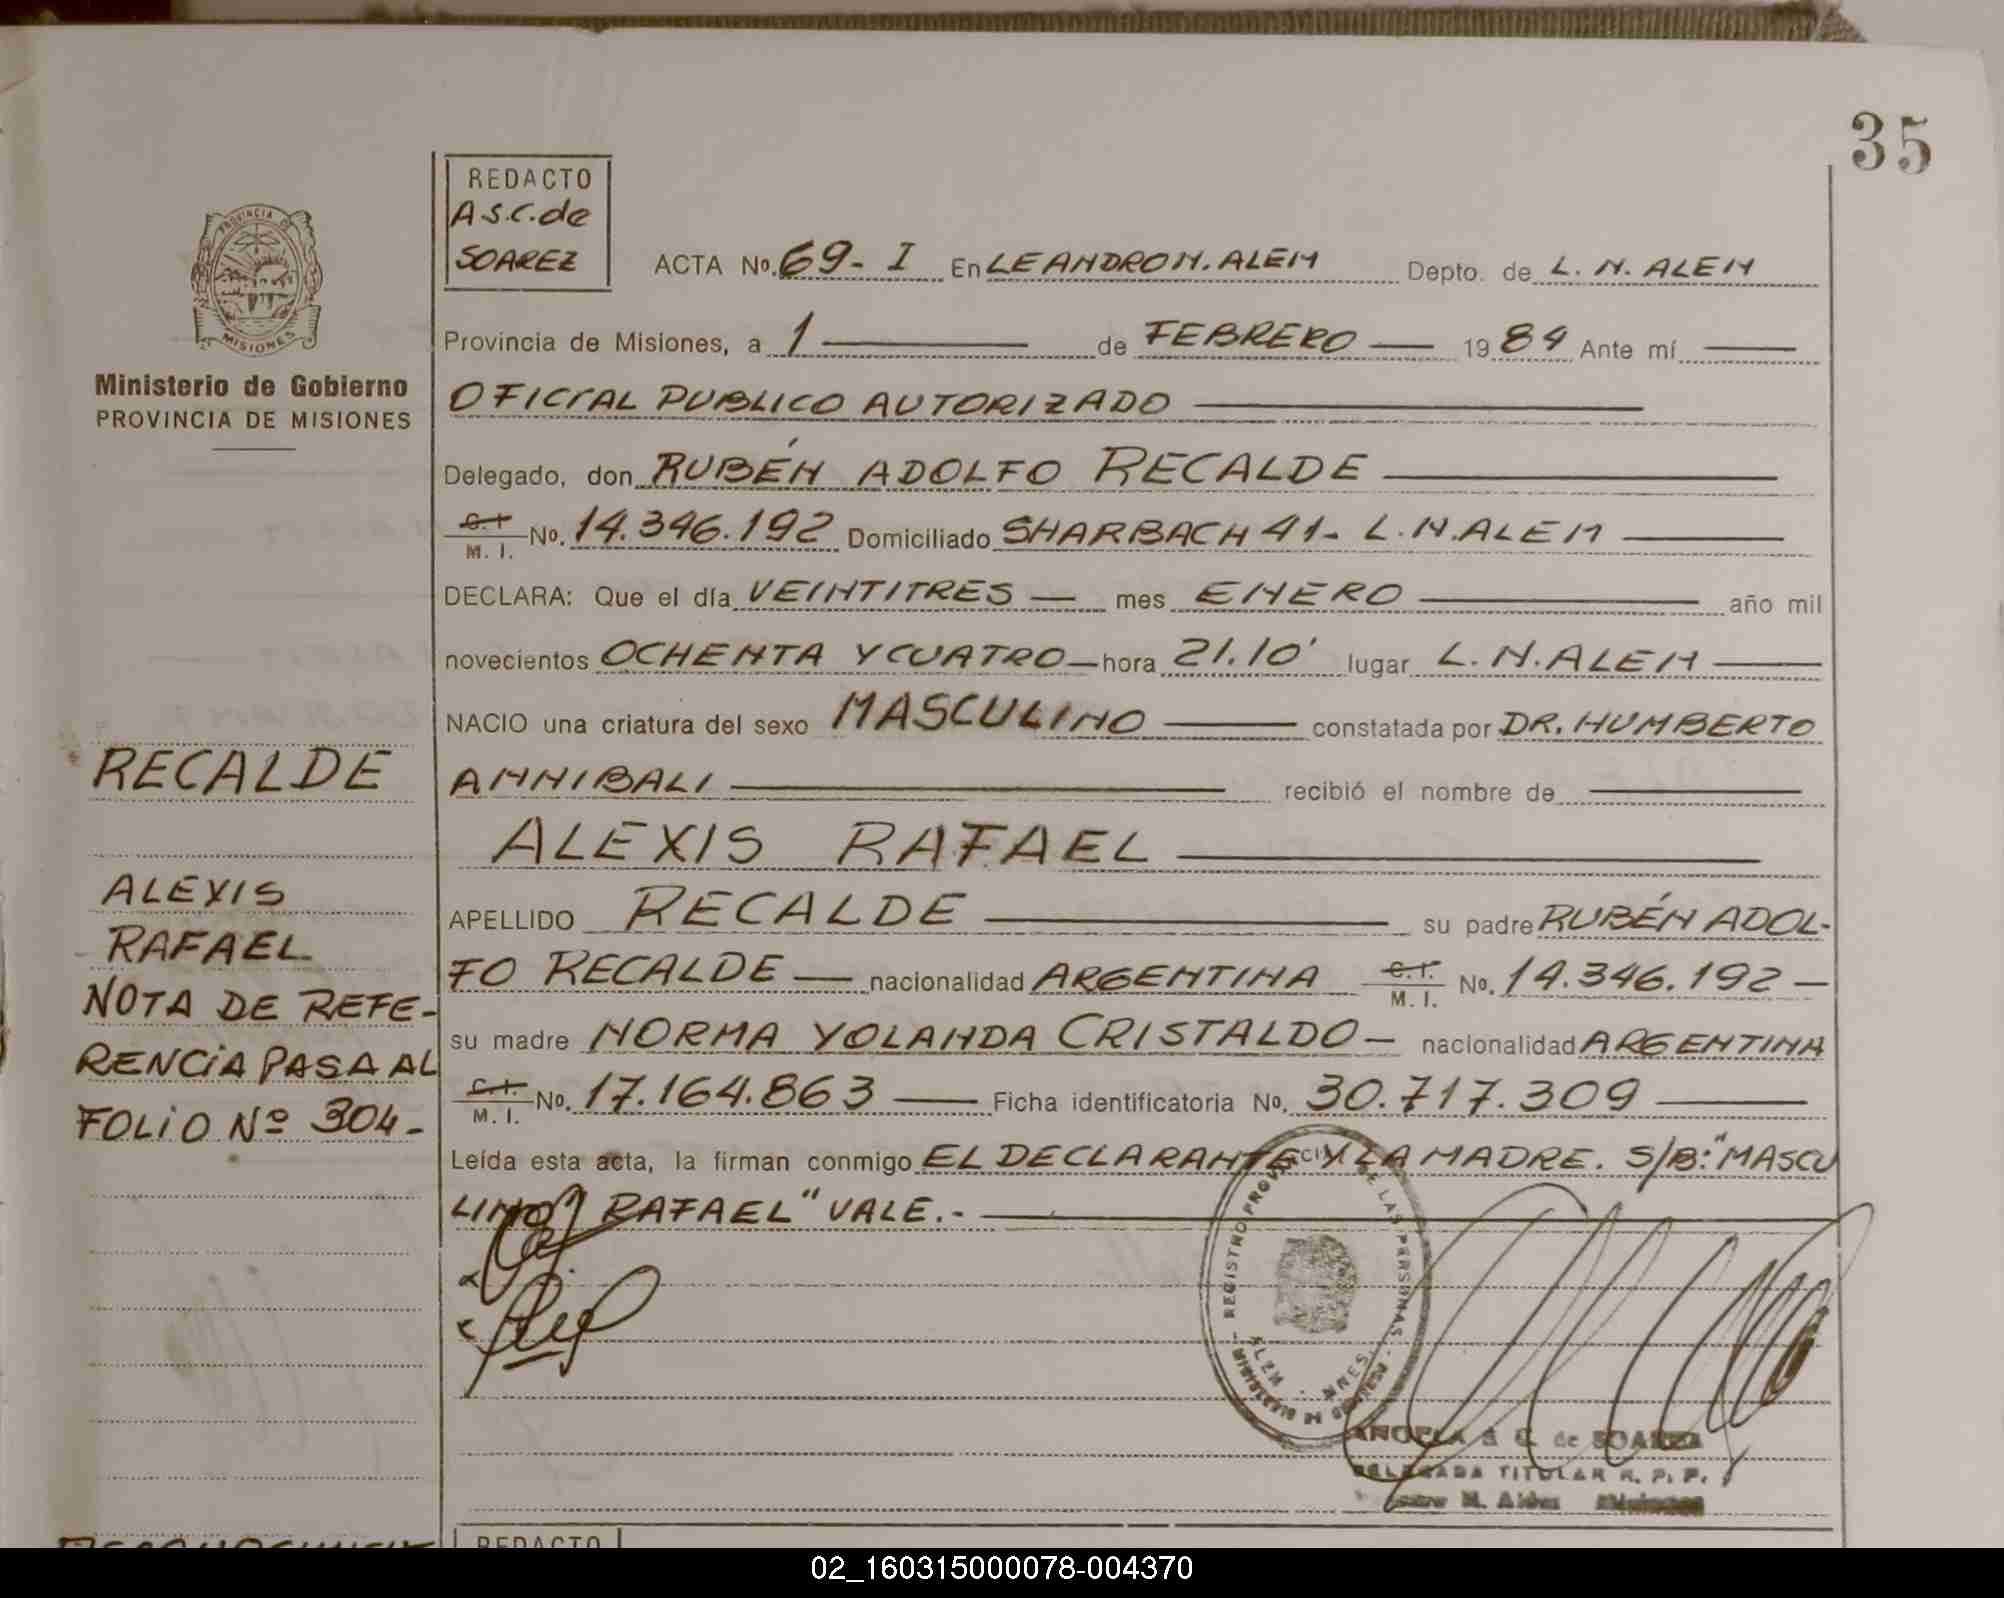 35
REDACTO
A.S.C. de
SOAREZ
ACTA No. 69-I En LEANDRO N. ALEM Depto. de L. N. ALEM
PROVINCIA DE
MISIONES
Ministerio de Gobierno
PROVINCIA DE MISIONES
Provincia de Misiones, a 1 de FEBRERO 1984 Ante mí
OFICIAL PUBLICO AUTORIZADO
Delegado, don RUBÉN ADOLFO RECALDE
C.I. M. I. No. 14.346.192 Domiciliado SHARBACH 41- L.N.ALEM
DECLARA: Que el día VEINTITRES mes ENERO año mil
novecientos OCHENTA Y CUATRO hora 21.10' lugar L.N.ALEM
NACIO una criatura del sexo MASCULINO constatada por DR. HUMBERTO
ANNIBALI recibió el nombre de
ALEXIS RAFAEL
APELLIDO RECALDE su padre RUBÉN ADOL-
FO RECALDE nacionalidad ARGENTINA C.I. M. I. No. 14.346.192
su madre NORMA YOLANDA CRISTALDO nacionalidad ARGENTINA
C.I. M. I. No. 17.164.863 Ficha identificatoria No. 30.717.309
Leída esta acta, la firman conmigo EL DECLARANTE Y LA MADRE. S/B: "MASCU
LINO" RAFAEL" VALE.-
RECALDE
ALEXIS
RAFAEL
NOTA DE REFE-
RENCIA PASA AL
FOLIO Nº 304-
REGISTRO PROVINCIAL DE LAS PERSONAS
ANGELA S C. de SOAREZ
DELEGADA TITULAR R. P. P.
REDACTO
02_160315000078-004370